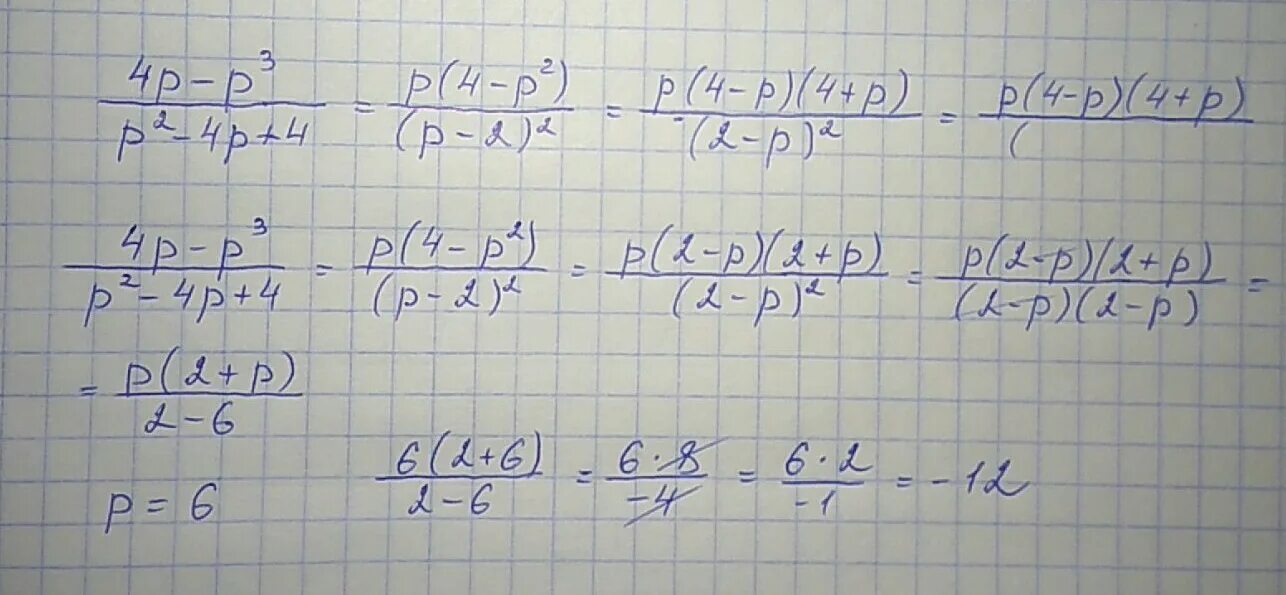 (4p - p³)/(p² - 4p + 4) = p(4 - p²)/(p - 2)² = p(4 - p)(4 + p)/(2 - p)² = p(4 - p)(4 + p)/(
(4p - p³)/(p² - 4p + 4) = p(4 - p²)/(p - 2)² = p(2 - p)(2 + p)/(2 - p)² = p(2 - p)(2 + p)/(2 - p)(2 - p) =
= p(2 + p)/(2 - 6)
p = 6 6(2 + 6)/(2 - 6) = 6 · 8/-4 = 6 · 2/-1 = -12